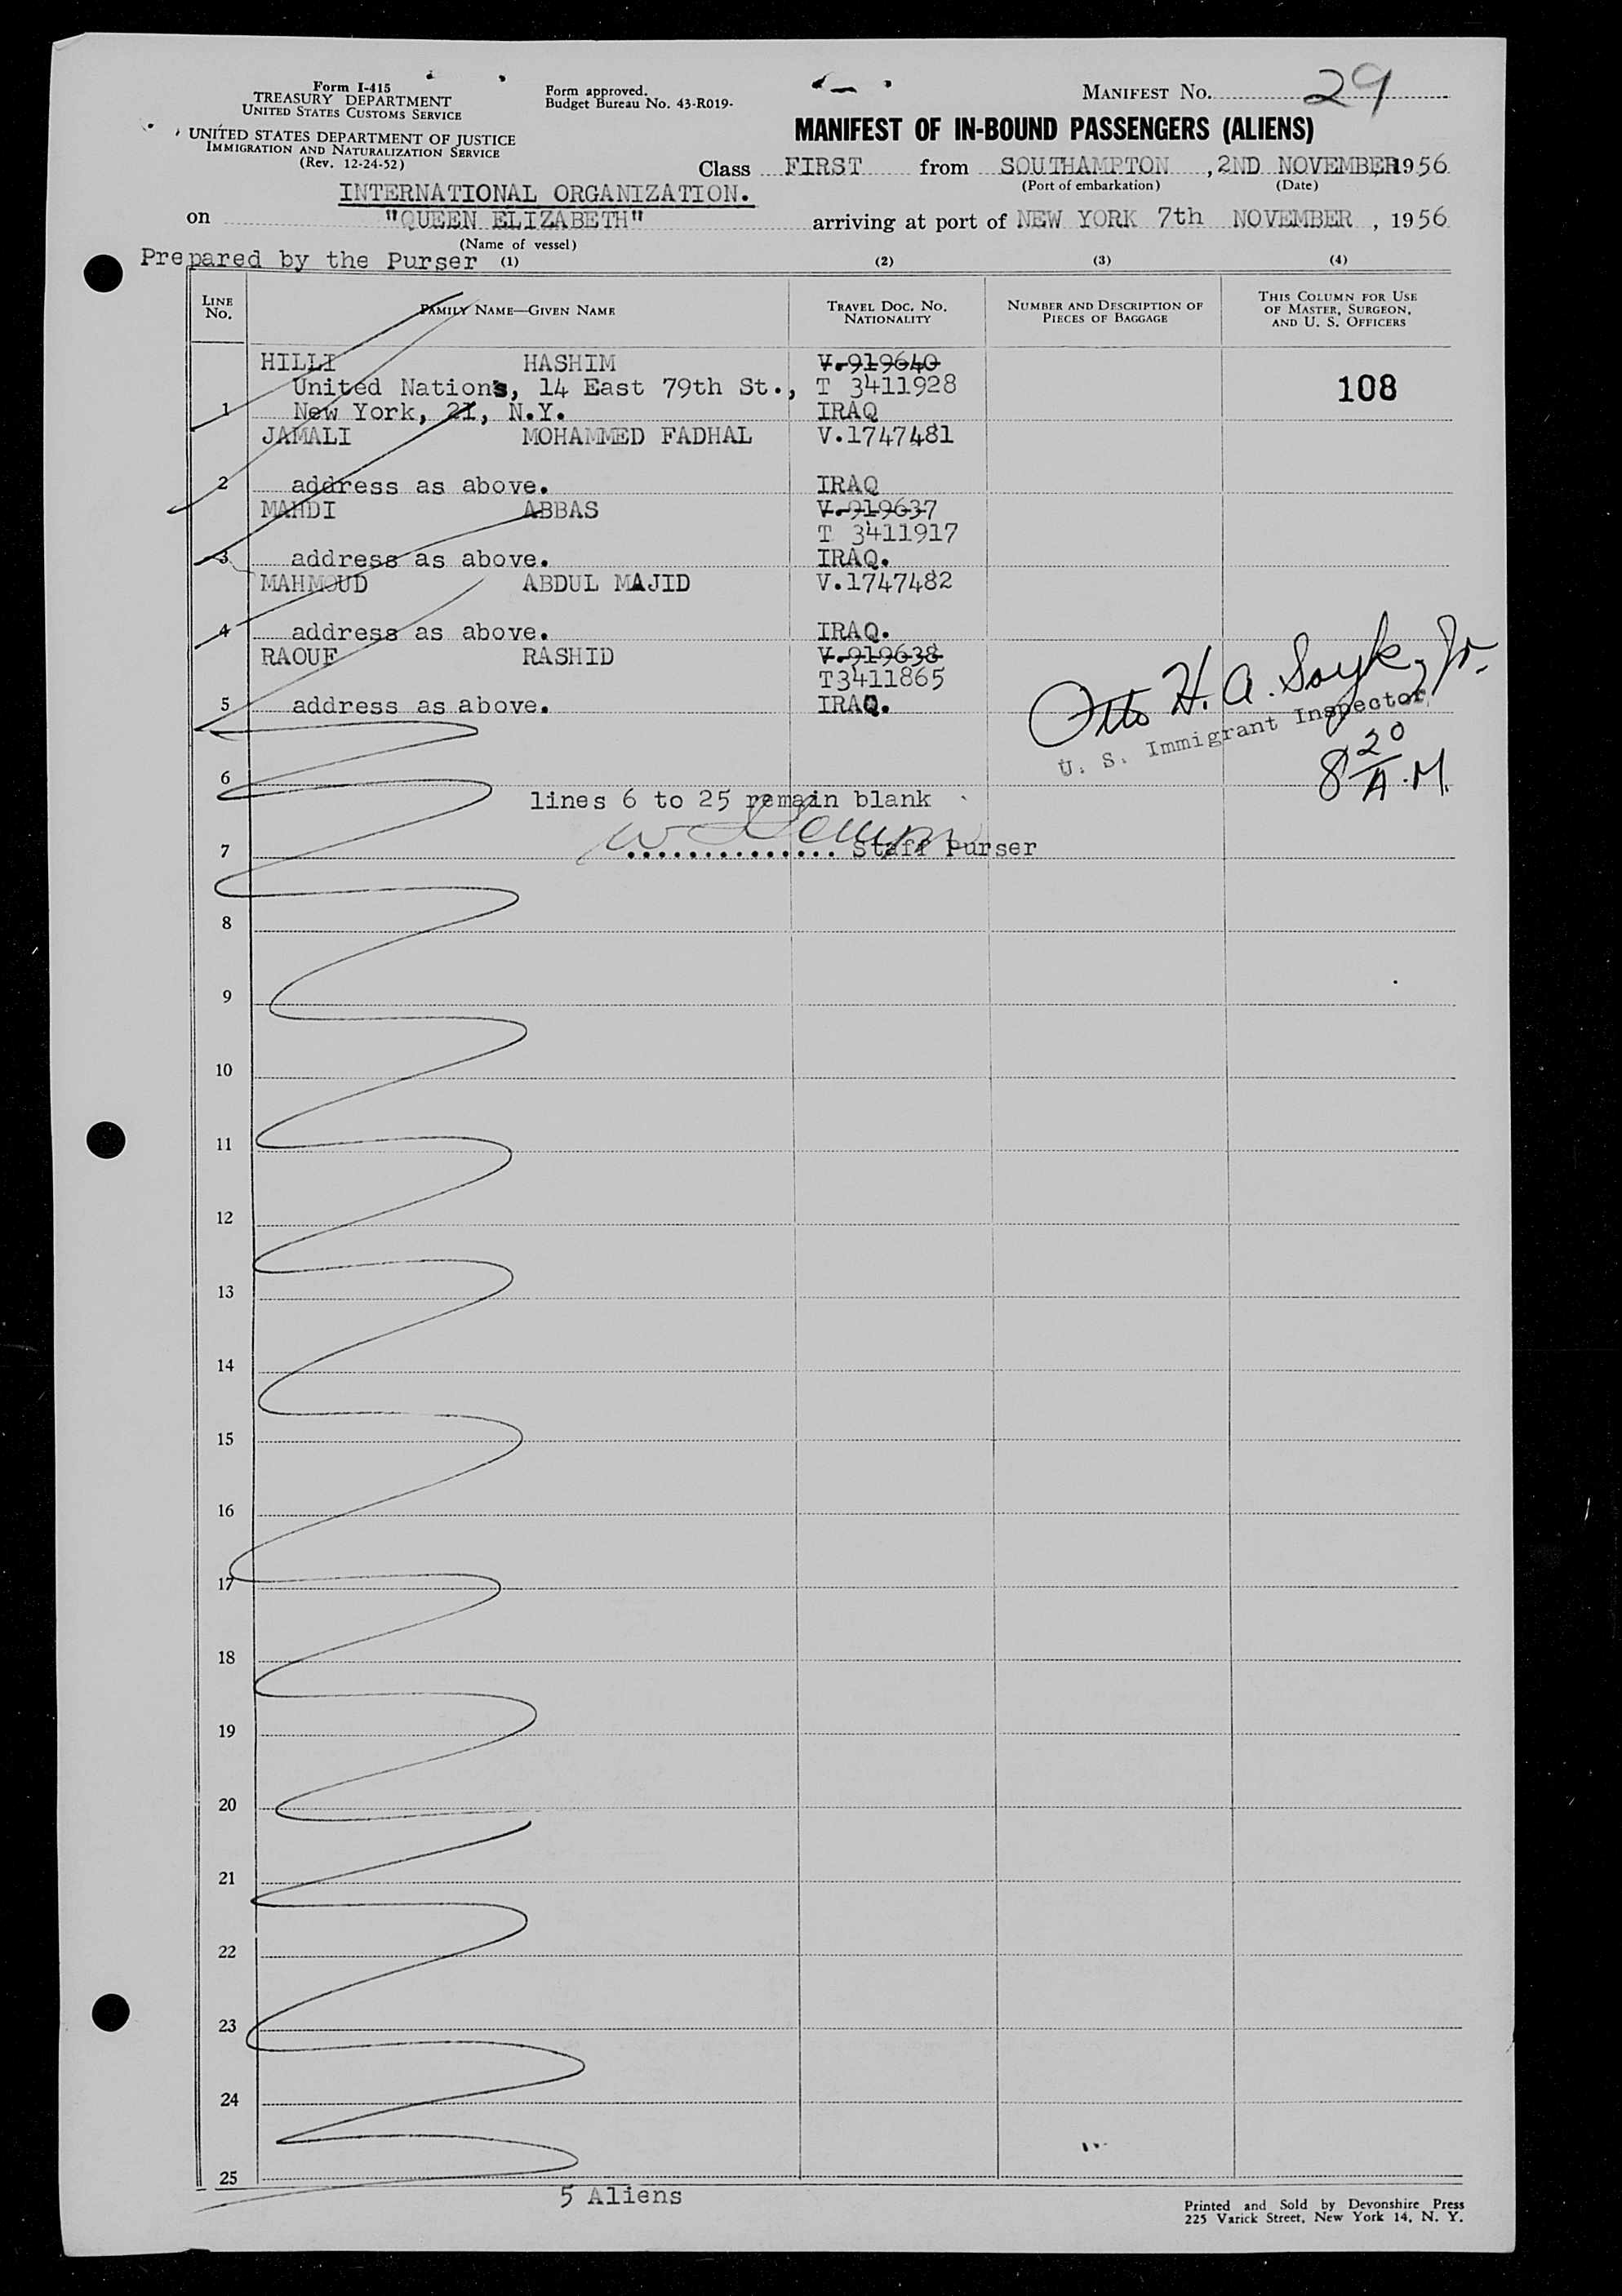 Form I-415
TREASURY DEPARTMENT
UNITED STATES CUSTOMS SERVICE
UNITED STATES DEPARTMENT OF JUSTICE
IMMIGRATION AND NATURALIZATION SERVICE
(Rev. 12-24-52)
Form approved.
Budget Bureau No. 43-R019-
MANIFEST No. 29
MANIFEST OF IN-BOUND PASSENGERS (ALIENS)
Class FIRST from SOUTHAMPTON , 2ND NOVEMBER, 1956
(Port of embarkation) (Date)
INTERNATIONAL ORGANIZATION.
on "QUEEN ELIZABETH" arriving at port of NEW YORK 7th NOVEMBER , 1956
(Name of vessel)
Prepared by the Purser (1) (2) (3) (4)
LINE No. FAMILY NAME—GIVEN NAME TRAVEL DOC. NO. NATIONALITY NUMBER AND DESCRIPTION OF PIECES OF BAGGAGE THIS COLUMN FOR USE OF MASTER, SURGEON, AND U. S. OFFICERS
HILLI HASHIM V.919640
United Nations, 14 East 79th St., T 3411928 108
1 New York, 21, N.Y. IRAQ
JAMALI MOHAMMED FADHAL V.1747481
2 address as above. IRAQ
MAHDI ABBAS V.919637
T 3411917
3 address as above. IRAQ.
MAHMOUD ABDUL MAJID V.1747482
4 address as above. IRAQ.
RAOUF RASHID V.919638
T3411865
5 address as above. IRAQ.
Otto H. A. Soyk, Jr.
U. S. Immigrant Inspector
8 20 A.M.
6
lines 6 to 25 remain blank
7 .............. Staff Purser
8
9
10
11
12
13
14
15
16
17
18
19
20
21
22
23
24
25
5 Aliens
Printed and Sold by Devonshire Press
225 Varick Street, New York 14, N. Y.